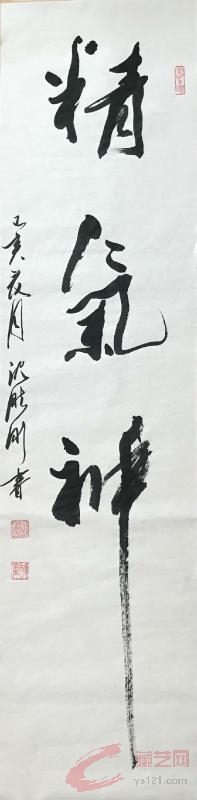 精氣神
己亥夏月沈胜刚書
藏艺网
ys121.com